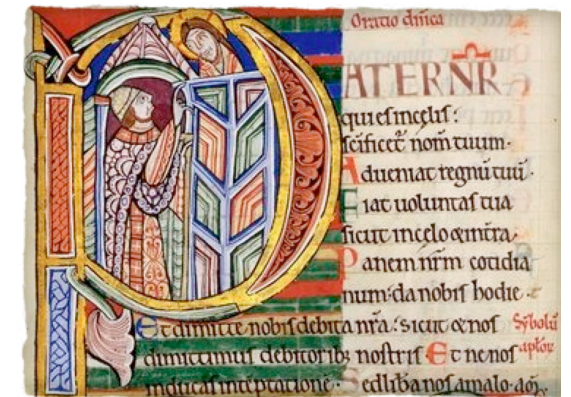 Oratio dñica
PATER NR̄
qui es in celis:
sc̄ificet̄ nom̄ tuum·
Adueniat regnū tuū·
Fiat uoluntas tua
sicut in celo & in t̄ra·
Panem nr̄m cotidia
num: da nobis hodie·
Et dimitte nobis debita nr̄a: sicut & nos
Sȳbolū
dimittimus debitorib; nostris Et ne nos
aplōr
inducas in tēptationē· Sed liba nos a malo· am̄